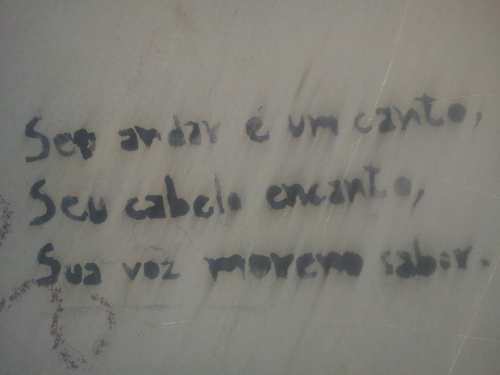 Seu andar é um canto,
Seu cabelo encanto,
Sua voz moreno sabor.